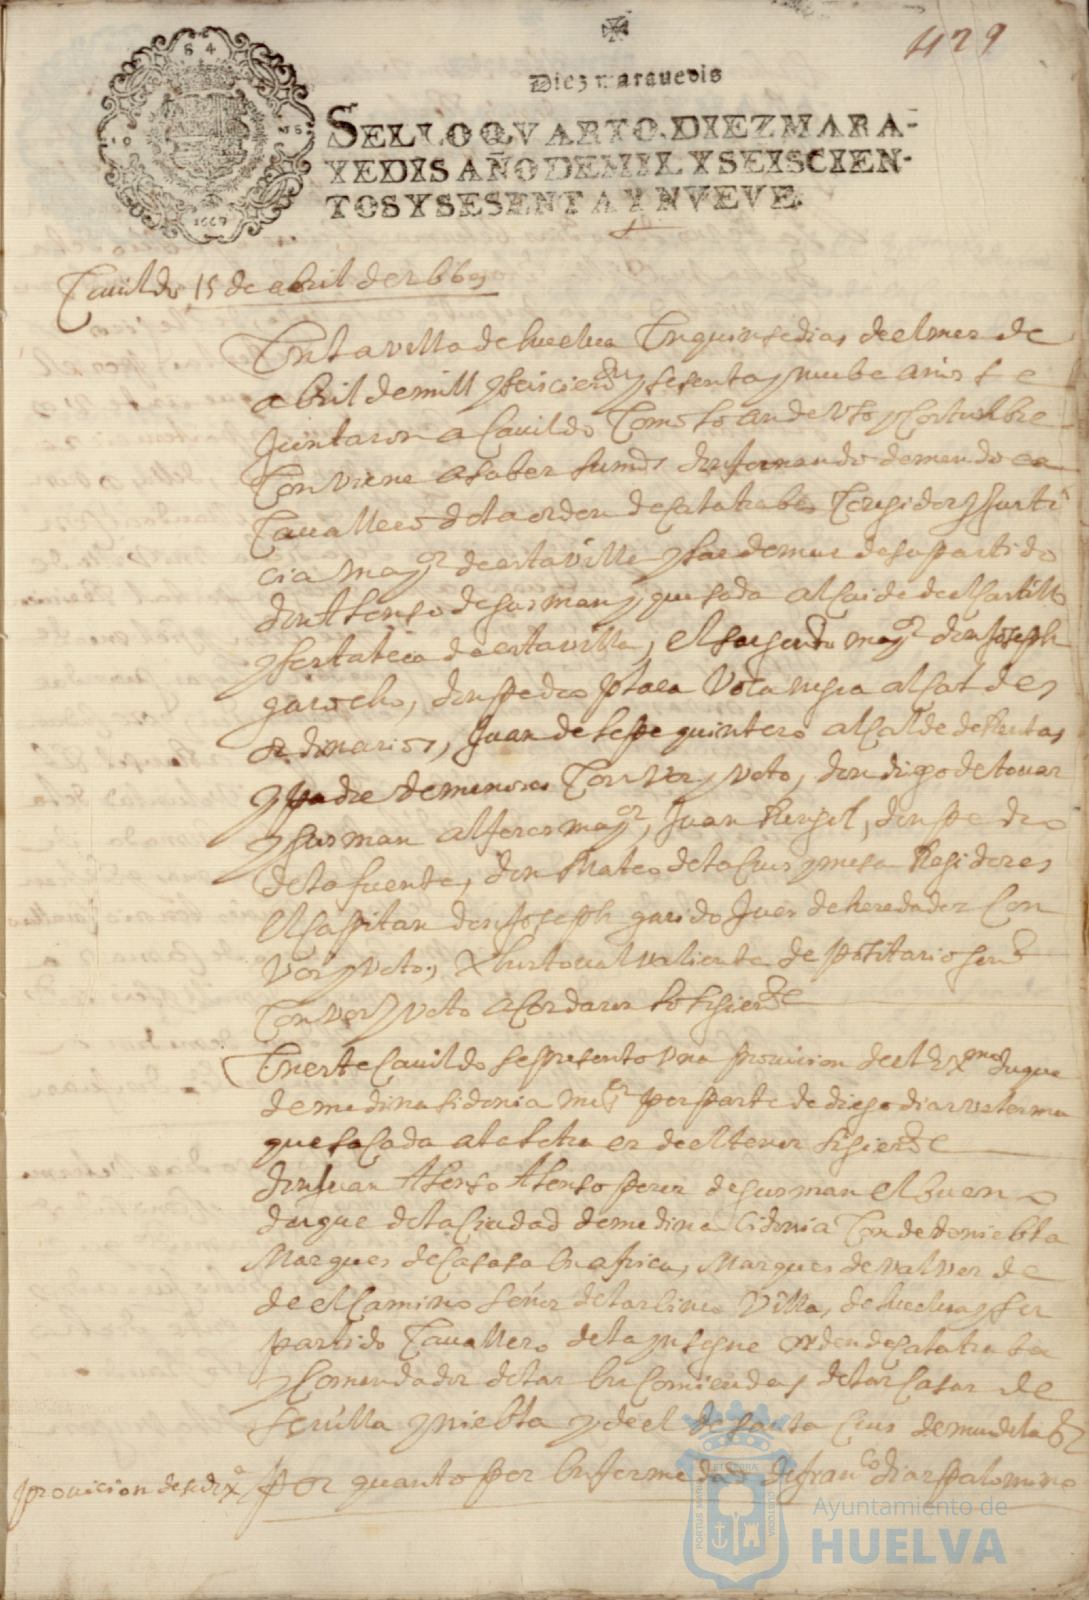 429
Diez marauedis
SELLO QVARTO, DIEZ MARA-
VEDIS AÑO DE MIL Y SEISCIEN-
TOS Y SESENTA Y NVEVE.
1669
Cauildo 15 de abril de 1669
En la villa de huelua En quinse dias de el mes de
abril de mill y seiscientos y sesenta y nuebe años se
Juntaron a Cauildo Como lo an de Vso y Costunbre
Conviene a saber su md don fernando de mendoca
Cauallero de la orden de Calatraba Coregidor y Justi
cia mayor de esta villa y las demas de su partido
don Alonso de Gusman y quesada alcaide de el Castillo
y fortaleca de esta villa, el sargento mayor don Joseph
garocho, don pedro de Vocanegra alcaldes
ordinarios, Juan de lepe quintero alcalde de Rentas
y padre de menores Con Vos y Voto, don diego de touar
y Gusman alferes mayor, Juan Rengel, don pedro
de la fuente, don Mateo de la Crus y mesa Regidores
El Capitan don Joseph garido Jues de heredades Con
Vos y Voto, Xhristoual valiente depositario
Con vos y Voto acordaron lo siguiente
En este Cauildo se presento Vna prouicion de el Exmo duque
de medina sidonia mi sr por parte de diego dias
que sacada a la letra es de el tenor siguiente
don Juan Alonso Alonso peres de gusman el bueno
duque de la Ciudad de medina Cidonia Conde de niebla
Marques de Casasa En africa, Marques de valverde
de el Camino señor de las Villas de huelua y su
partido Cauallero de la ynsigne orden de Calatraba
y Comendador de las Encomiendas de las Casas de
Seuilla y niebla y de el de santa Crus de mudela
prouicion de su Exa
por quanto por Enfermedad de franco dias palomino
Ayuntamiento de
HUELVA